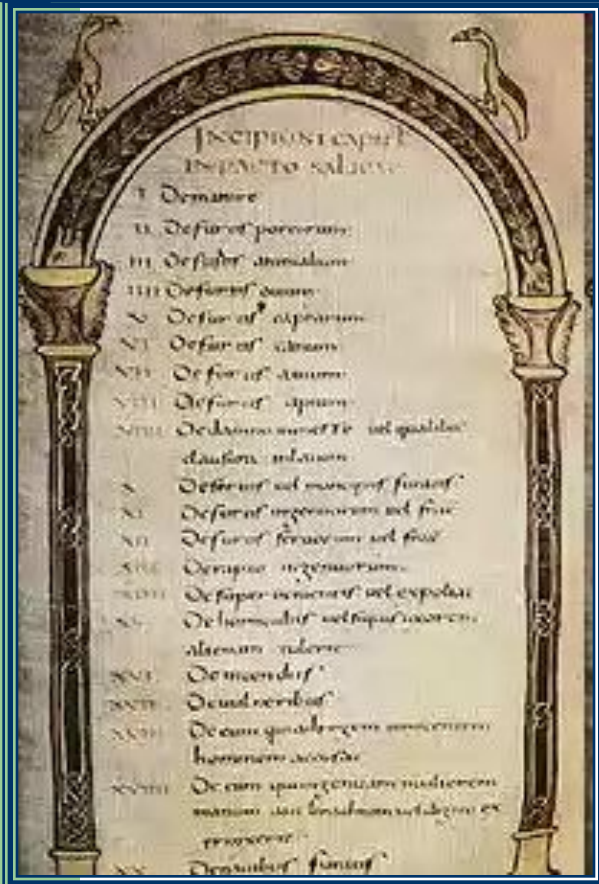 INCIPIUNT CAPITL
IN PACTO SALICAE
I De mannire
II De furtis porcorum
III De furtis animalium
IIII De furtis ouium
V De furtis caprarum
VI De furtis canum
VII De furtis auium
VIII De furtis apium
VIIII De damno in messe uel qualibe
clausura inlatum
X De seruis uel mancipiis furatis
XI De furtis ingenuorum uel frac
XII De furtis seruorum uel frac
XIII De rapto ingenuorum
XIIII De superuenientis uel expoliat
XV De homicidiis uel si quis uxorem
alienam tulerit
XVI De incendiis
XVII De uulneribus
XVIII De eum qui ad regem innocentem
hominem accusat
XVIIII De eum qui ingenuam mulierem
manum aut brachium uel digitum ex
XX De nauibus furatis